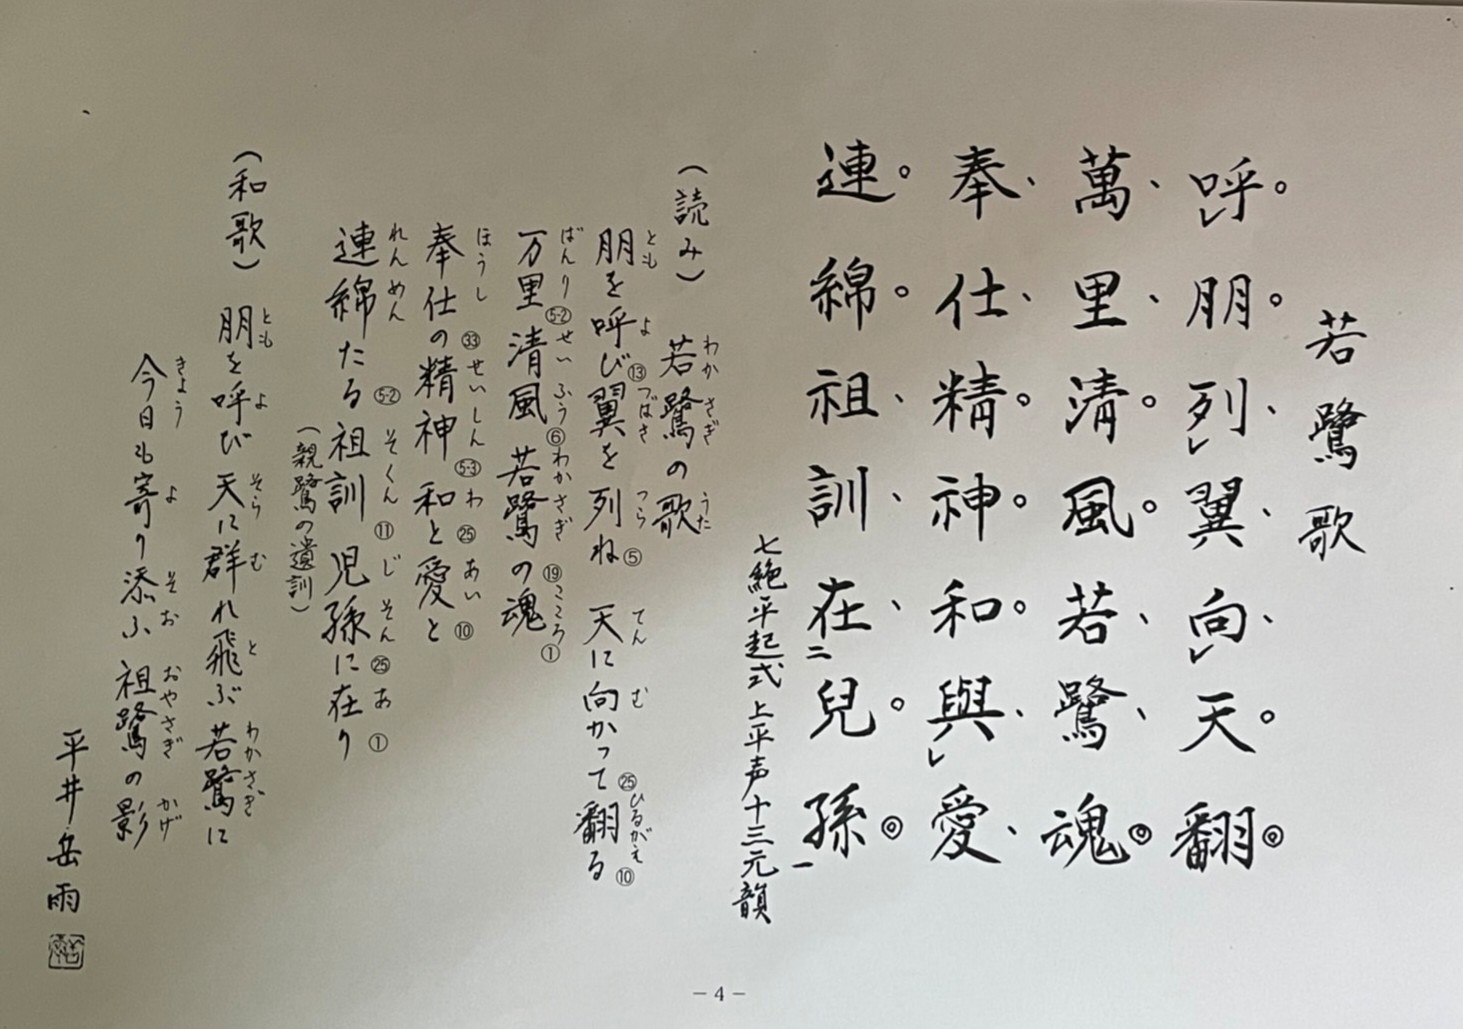 若鷺歌
呼朋列翼向天翻
萬里清風若鷺魂
奉仕精神和與愛
連綿祖訓在兒孫
七絶平起式 上平声十三元韻
（読み） 若鷺の歌
朋を呼び⑬翼を列ね⑤ 天に向かって㉕翻る⑩
万里(5-2)清風⑥若鷺の⑲魂①
奉仕の㉝精神(5-3)和と㉕愛と⑩
連綿たる(5-2)祖訓⑪児孫に㉕在り①
（親鷺の遺訓）
（和歌） 朋を呼び 天に群れ飛ぶ 若鷺に
今日も寄り添ふ 祖鷺の影
平井岳雨
－4－